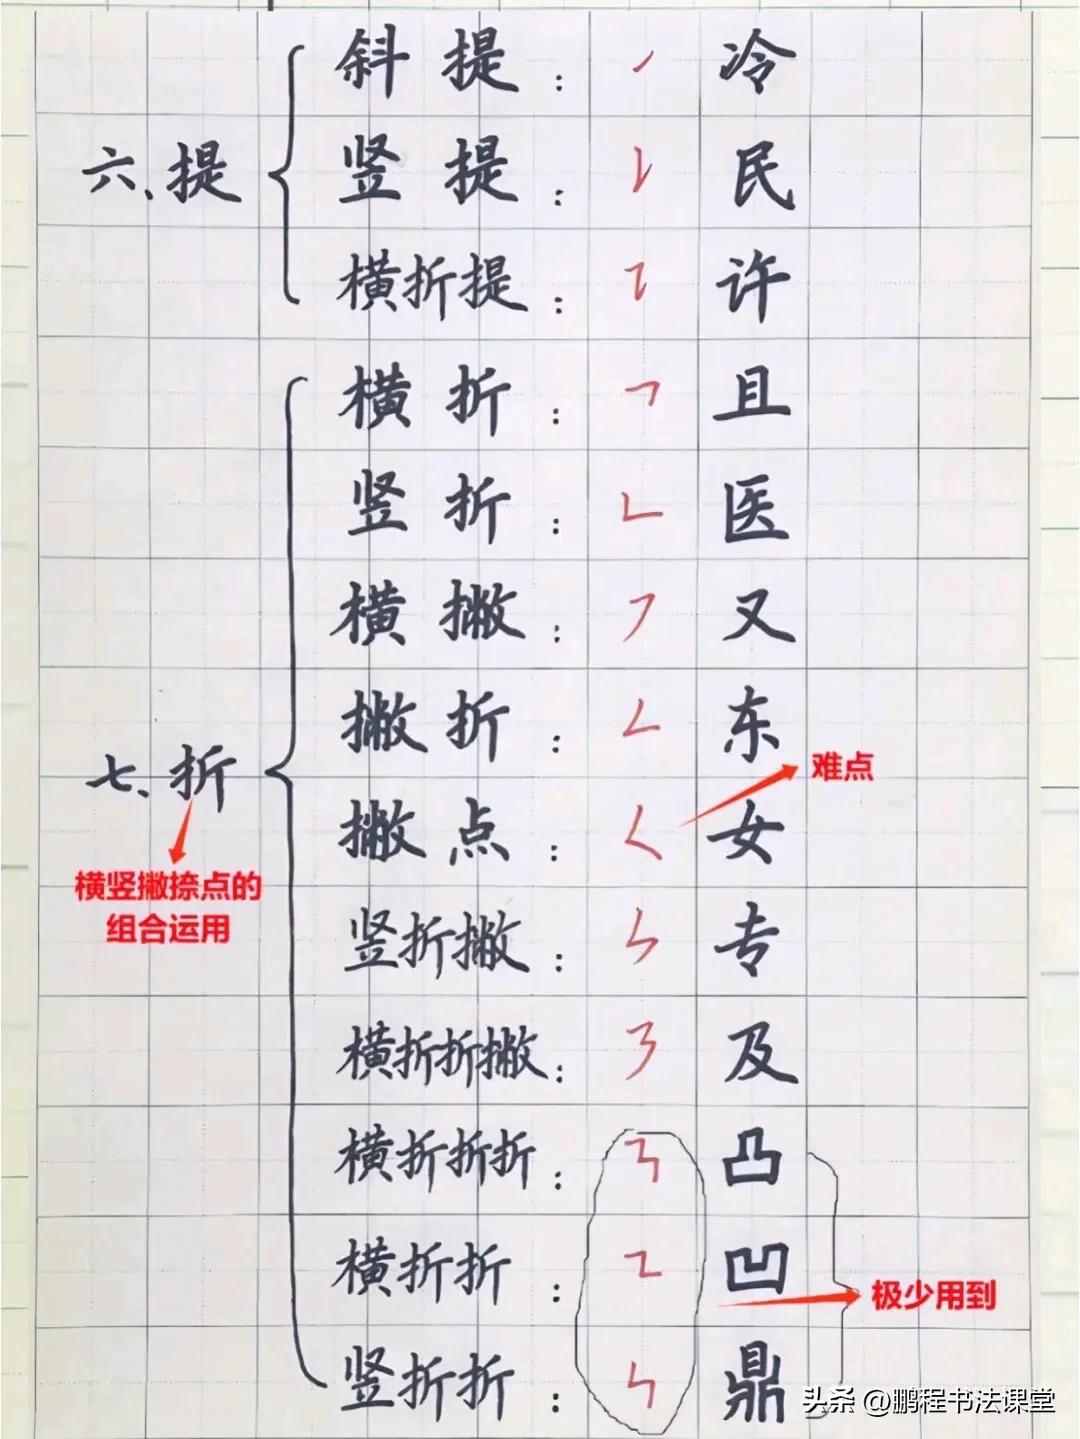 斜提：㇀ 冷
六、提 竖提：𠄌 民
横折提：㇊ 许
横折：𠃍 且
竖折：𠃊 医
横撇：㇇ 又
撇折：𠃋 东
难点
七、折
撇点：𡿨 女
横竖撇捺点的
组合运用
竖折撇：ㄣ 专
横折折撇：㇋ 及
横折折折：㇎ 凸
横折折：㇅ 凹
极少用到
竖折折：𠃑 鼎
头条 @鹏程书法课堂